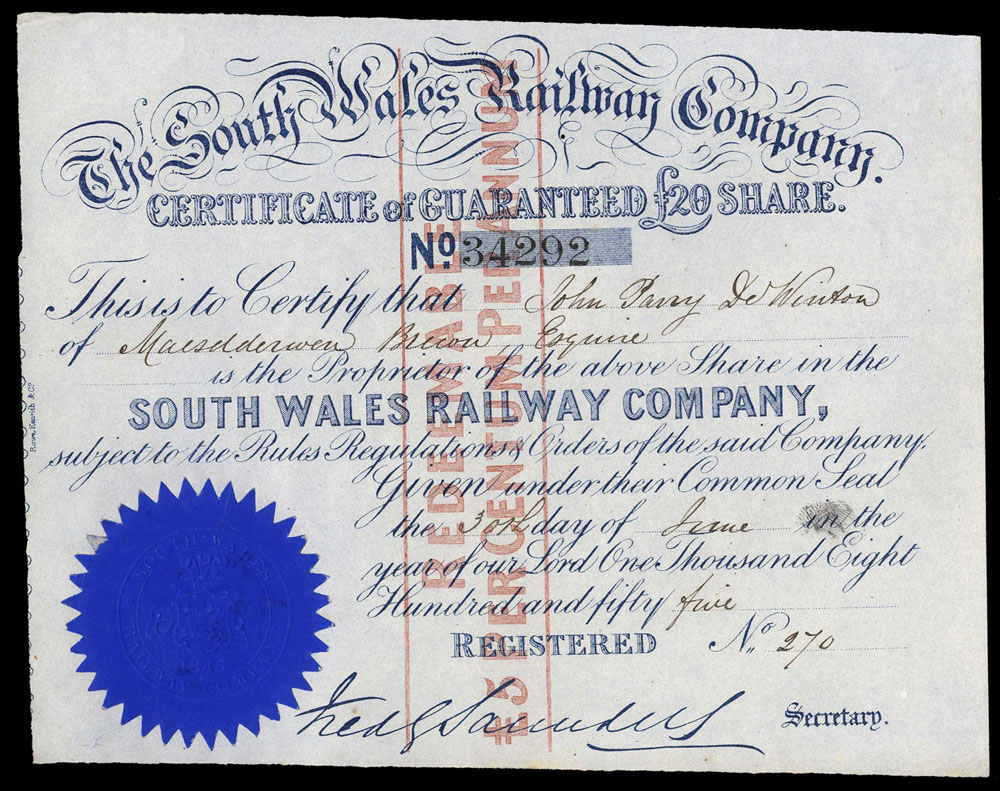 The South Wales Railway Company.
CERTIFICATE of GUARANTEED £20 SHARE.
No. 34292
This is to Certify that John Parry De Winton
of Maesdderwen Brecon Esquire
is the Proprietor of the above Share in the
SOUTH WALES RAILWAY COMPANY,
subject to the Rules Regulations & Orders of the said Company.
Given under their Common Seal
the 30th day of June in the
year of our Lord One Thousand Eight
Hundred and fifty five
REGISTERED No. 270
Fred G Saunders Secretary.
REDEEMABLE
£5 PER CENTUM PER ANNUM
SOUTH WALES
RAILWAY COMPANY